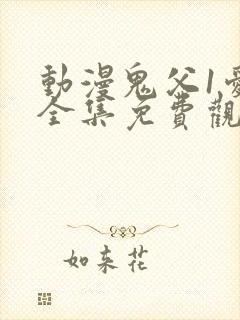 動漫鬼父1
全集免費觀
如来花